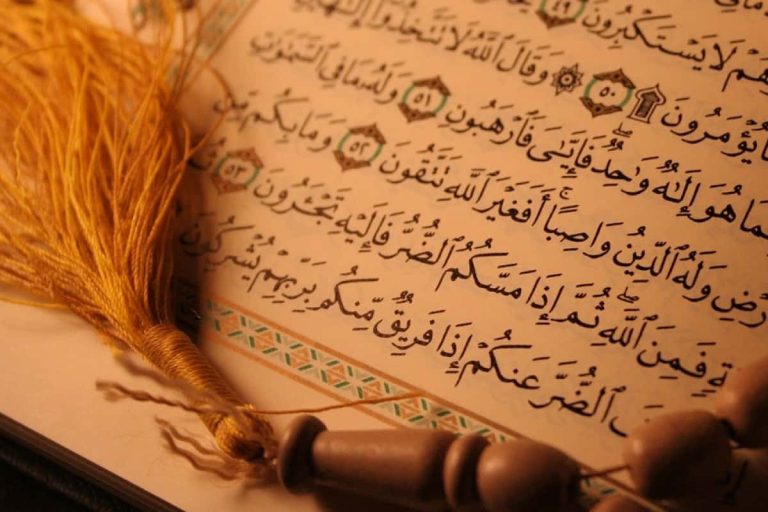 هُمْ لَا يَسْتَكْبِرُونَ ٤٩
مَا يُؤْمَرُونَ ۩ ٥٠ ۞ وَقَالَ ٱللَّهُ لَا تَتَّخِذُوٓا۟ إِلَٰهَيْنِ
هُوَ إِلَٰهٌ وَٰحِدٌ ۖ فَإِيَّٰىَ فَٱرْهَبُونِ ٥١ وَلَهُۥ مَا فِى ٱلسَّمَٰوَٰتِ
وَلَهُ ٱلدِّينُ وَاصِبًا ۚ أَفَغَيْرَ ٱللَّهِ تَتَّقُونَ ٥٢ وَمَا بِكُم مِّن
فَمِنَ ٱللَّهِ ۖ ثُمَّ إِذَا مَسَّكُمُ ٱلضُّرُّ فَإِلَيْهِ تَجْـَٔرُونَ ٥٣
ٱلضُّرَّ عَنكُمْ إِذَا فَرِيقٌ مِّنكُم بِرَبِّهِمْ يُشْرِكُونَ